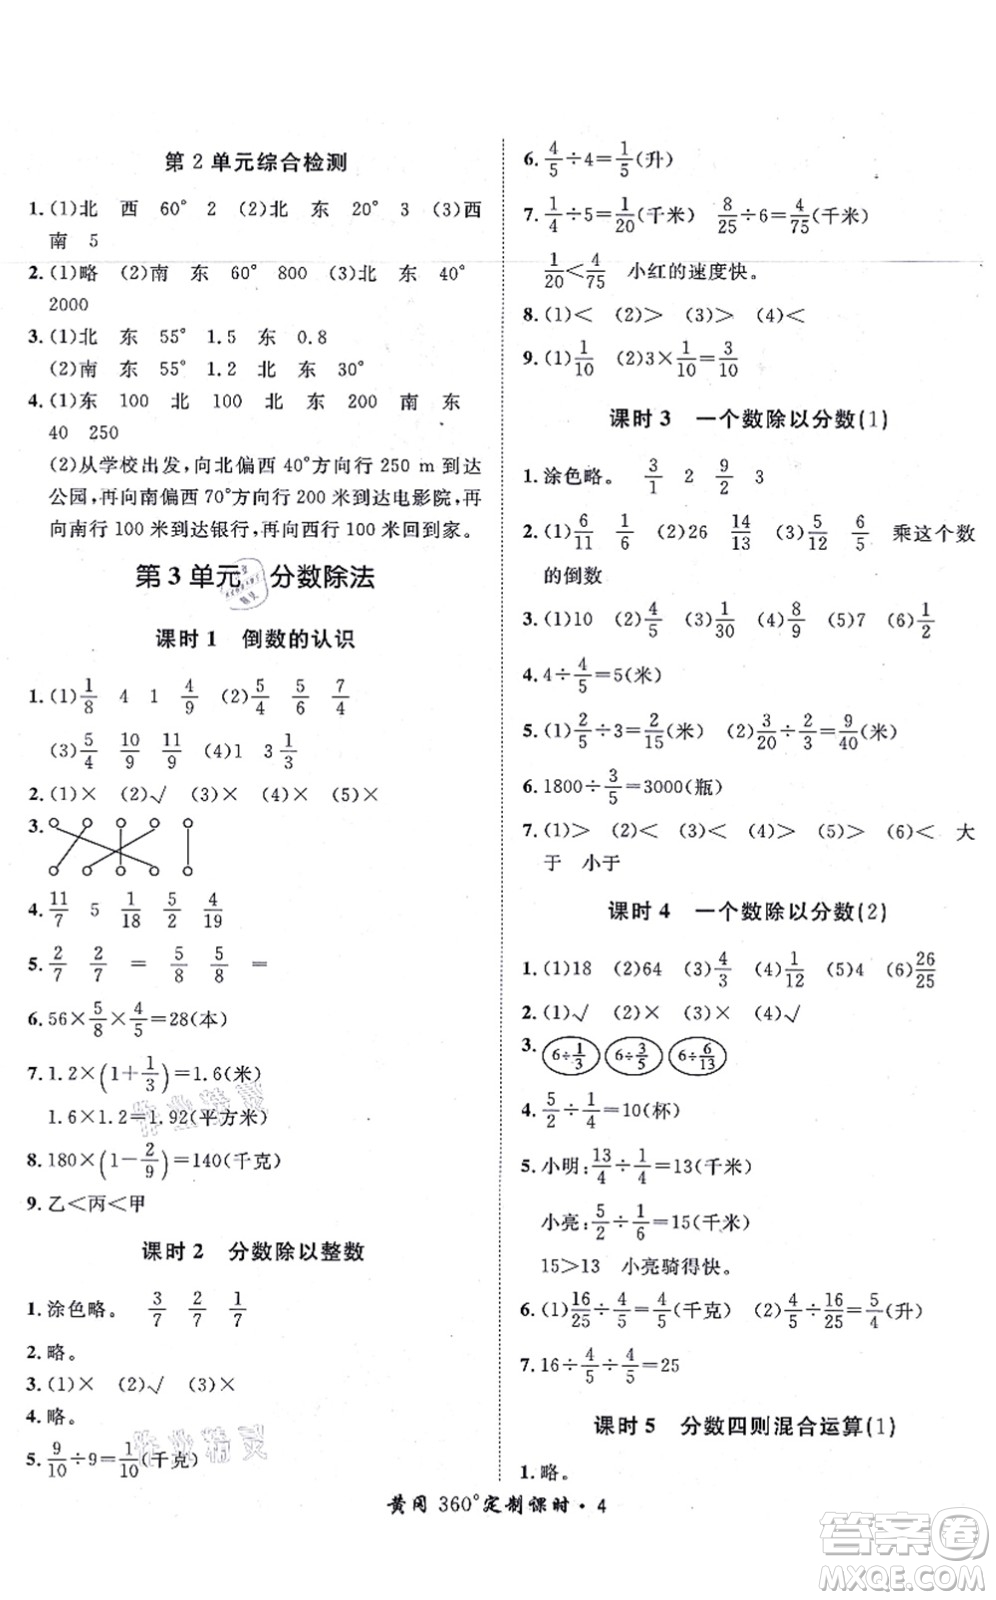 第2单元综合检测
1. (1)北 西 60° 2 (2)北 东 20° 3 (3)西
南 5
2. (1)略 (2)南 东 60° 800 (3)北 东 40°
2000
3. (1)北 东 55° 1.5 东 0.8
(2)南 东 55° 1.2 北 东 30°
4. (1)东 100 北 100 北 东 200 南 东
40 250
(2)从学校出发,向北偏西40°方向行250 m到达
公园,再向南偏西70°方向行200米到达电影院,再
向南行100米到达银行,再向西行100米回到家。
第3单元 分数除法
课时1 倒数的认识
1. (1)1/8 4 1 4/9 (2)5/4 5/6 7/4
(3)5/4 10/9 11/9 (4)1 3 1/3
2. (1)× (2)√ (3)× (4)× (5)×
3.
4. 11/7 5 1/18 5/2 4/19
5. 2/7 2/7 = 5/8 5/8 =
6. 56×5/8×4/5=28(本)
7. 1.2×(1+1/3)=1.6(米)
1.6×1.2=1.92(平方米)
8. 180×(1-2/9)=140(千克)
9. 乙<丙<甲
课时2 分数除以整数
1. 涂色略。 3/7 2/7 1/7
2. 略。
3. (1)× (2)√ (3)×
4. 略。
5. 9/10÷9=1/10(千克)
6. 4/5÷4=1/5(升)
7. 1/4÷5=1/20(千米) 8/25÷6=4/75(千米)
1/20<4/75 小红的速度快。
8. (1)< (2)> (3)> (4)<
9. (1)1/10 (2)3×1/10=3/10
课时3 一个数除以分数(1)
1. 涂色略。 3/1 2 9/2 3
2. (1)6/11 1/6 (2)26 14/13 (3)5/12 6/5 乘这个数
的倒数
3. (1)10 (2)4/5 (3)1/30 (4)8/9 (5)7 (6)1/2
4. 4÷4/5=5(米)
5. (1)2/5÷3=2/15(米) (2)3/20÷2/3=9/40(米)
6. 1800÷3/5=3000(瓶)
7. (1)> (2)< (3)< (4)> (5)> (6)< 大
于 小于
课时4 一个数除以分数(2)
1. (1)18 (2)64 (3)4/3 (4)1/12 (5)4 (6)26/25
2. (1)√ (2)× (3)× (4)√
3. 6÷1/3 6÷3/5 6÷6/13
4. 5/2÷1/4=10(杯)
5. 小明:13/4÷1/4=13(千米)
小亮:5/2÷1/6=15(千米)
15>13 小亮骑得快。
6. (1)16/25÷4/5=4/5(千克) (2)4/5÷16/25=5/4(升)
7. 16÷4/5÷4/5=25
课时5 分数四则混合运算(1)
1. 略。
黄冈 360°定制课时·4
答案卷
MXQE.COM
作业精灵
作业精灵